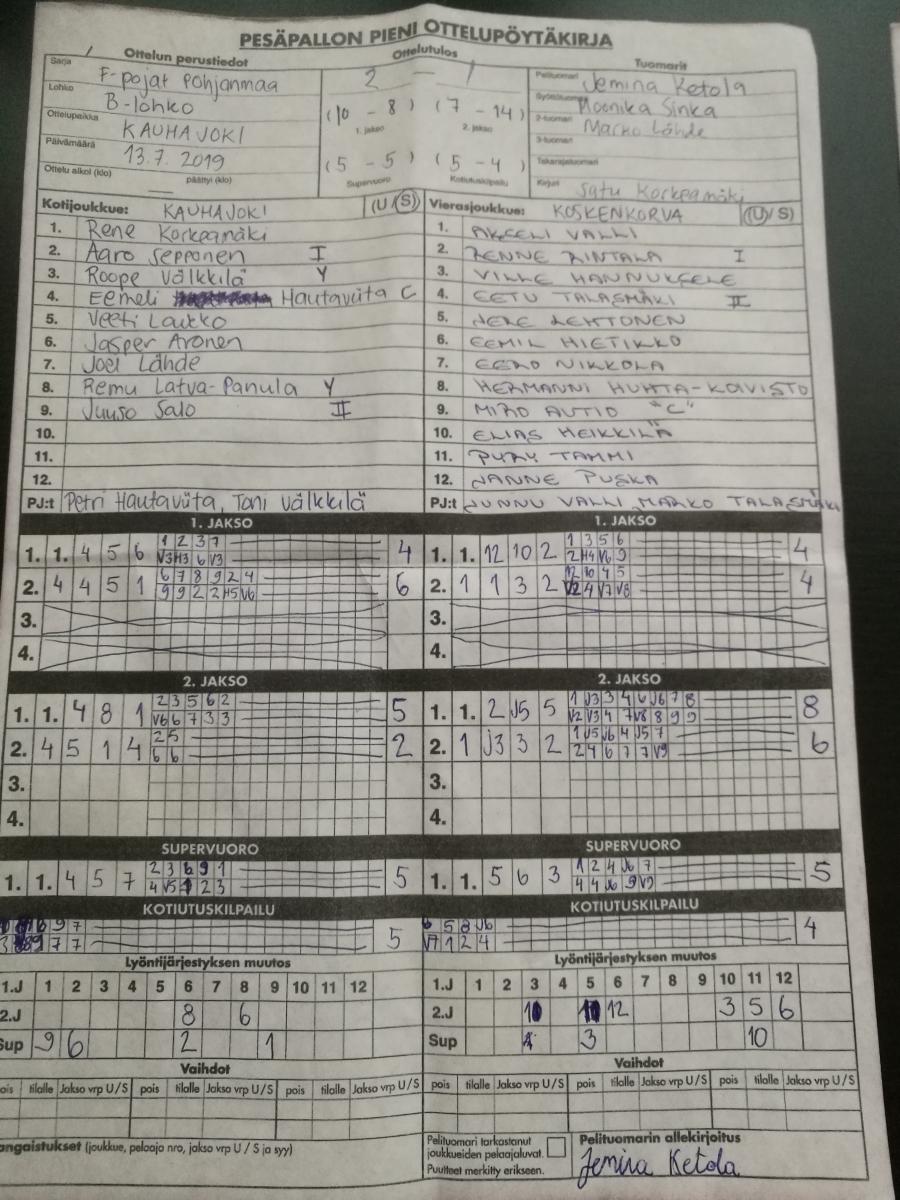 PESÄPALLON PIENI OTTELUPÖYTÄKIRJA
Ottelun perustiedot
Ottelutulos
Tuomarit
Sarja F-pojat Pohjanmaa
Lohko B-lohko
Ottelupaikka KAUHAJOKI
Päivämäärä 13.7.2019
Ottelu alkoi (klo) — päättyi (klo)
2 — 1
(10 - 8) (7 - 14)
1. jakso 2. jakso
(5 - 5) (5 - 4)
Supervuoro Kotiutuskilpailu
Pelituomari Jemina Ketola
Syöttötuomari Moonika Sinka
2-tuomari Marko Lähde
3-tuomari
Takarajatuomari
Kirjuri Satu Korkeamäki
Kotijoukkue: KAUHAJOKI (U/S)
1. Rene Korkeamäki
2. Aaro Sepponen I
3. Roope Välkkilä Y
4. Eemeli Hautaviita C
5. Veeti Laukko
6. Jasper Aronen
7. Joel Lähde
8. Remu Latva-Panula Y
9. Juuso Salo II
10.
11.
12.
PJ:t Petri Hautaviita, Toni Välkkilä
Vierasjoukkue: KOSKENKORVA (U/S)
1. AKSELI VALLI
2. RINTALA I
3. VILLE HANNUKSELE
4. EETU TALASMÄKI II
5. JERE LEHTONEN
6. EEMIL HIETIKKO
7. EERO NIKKOLA
8. HERMANNI HUHTA-KOIVISTO
9. MIRO AUTIO "C"
10. ELIAS HEIKKILÄ
11. TAMMI
12. JANNE PUSKA
PJ:t JUNNU VALLI MARKO TALASMÄKI
1. JAKSO
1. 1. 4 5 6 1 2 3 7 4
V3 H3 6 V3
2. 4 4 5 1 6 7 8 9 2 4 6
9 9 2 2 H5 V6
3.
4.
1. JAKSO
1. 1. 12 10 2 1 3 5 6 4
2 H4 V6 9
2. 1 1 3 2 12 10 4 5 4
V2 4 V7 V8
3.
4.
2. JAKSO
1. 1. 4 8 1 2 3 5 6 2 5
V6 6 7 3 3
2. 4 5 1 4 2 5 2
6 6
3.
4.
2. JAKSO
1. 1. 2 J5 5 1 J3 3 4 6 J6 7 8 8
V2 V3 4 7 V8 8 9 9
2. 1 J3 3 2 1 J5 J6 4 J5 7 6
2 4 6 7 7 V9
3.
4.
SUPERVUORO
1. 1. 4 5 7 2 3 6 9 1 5
4 V5 2 3
SUPERVUORO
1. 1. 5 6 3 1 2 4 J6 7 5
4 4 J6 9 V9
KOTIUTUSKILPAILU
6 9 7 5
3 9 7 7
KOTIUTUSKILPAILU
6 5 8 J6 4
V7 1 2 4
Lyöntijärjestyksen muutos
1.J 1 2 3 4 5 6 7 8 9 10 11 12
2.J 8 6
Sup 9 6 2 1
Lyöntijärjestyksen muutos
1.J 1 2 3 4 5 6 7 8 9 10 11 12
2.J 12 3 5 6
Sup 3 10
Vaihdot
ois tilalle Jakso vrp U/S pois tilalle Jakso vrp U/S pois tilalle Jakso vrp U/S
Vaihdot
pois tilalle Jakso vrp U/S pois tilalle Jakso vrp U/S pois tilalle Jakso vrp U/S
angaistukset (joukkue, pelaaja nro, jakso vrp U / S ja syy)
Pelituomari tarkastanut
joukkueiden pelaajaluvat.
Puutteet merkitty erikseen.
Pelituomarin allekirjoitus
Jemina Ketola